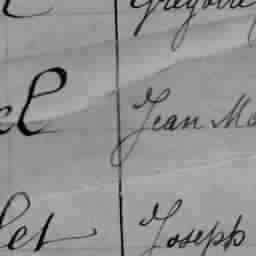 Grégoire
el Jean Ma
let Joseph